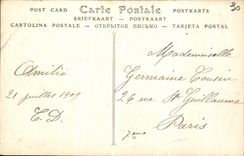 30
POST CARD Carte Postale POSTKARTE
BRIEFKAART - POSTKAART
CARTOLINA POSTALE - ОТКРЫТОЕ ПИСЬМО - TARJETA POSTAL
Amitiés
21 juillet 1909
E.D.
Mademoiselle
Germaine Cousin
26 rue St Guillaume
Paris
7ème